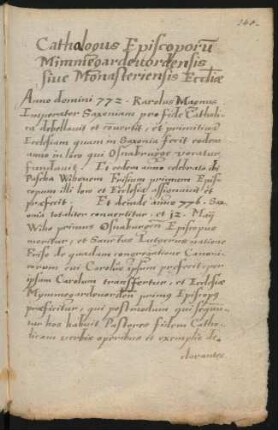 240.
Cathalogus Episcoporũ
Mimmegardevordensis
siue Monasteriensis Eccl̃iæ
Anno domini 772. Karolus Magnus
Imperator Saxoniam pro fide Catholi-
ca debellauit et conuertit, et primitiuã
Ecclesiam quam in Saxonia fecit eodem
anno in loco qui Osnabrugge vocatur
fundauit. Et eodem anno celebrato ibi
Pascha Wihonem Frisium primum Epis-
copum illi loco et Ecclesiæ assignauit et
prefecit. Et deinde anno 776. Sax-
onia totaliter conuertitur, et 12. Maij
Wiho primus Osnaburgen̄ Episcopus
moritur, et Sanctus Lutgerus natione
Friso de quadam congregatione Canoni-
corum cui Carolus ipsum prefecit, per
ipsum Carolum transfertur, et Ecclesiæ
Mymmegardeuorden̄ primus Episcop9
præficitur, qui postmodum qui sequun-
tur hos habuit Pastores fidem Catho-
licam verbis operibus et exemplis de-
clarantes